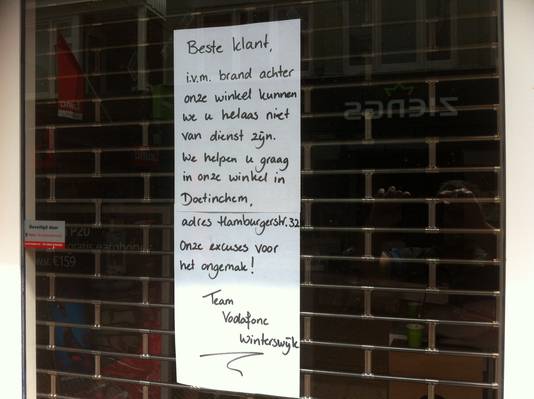 Beste klant,
i.v.m. brand achter
onze winkel kunnen
we u helaas niet
van dienst zijn.
We helpen u graag
in onze winkel in
Doetinchem,
adres Hamburgerstr.32
Onze excuses voor
het ongemak!
Team
Vodafone
Winterswijk
ZIENGS
Beveiligd door
P20
gratis earphones
€159